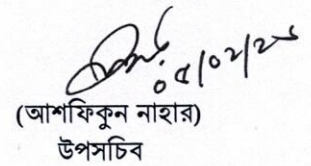 ০৫/০২/২৬
(আশফিকুন নাহার)
উপসচিব